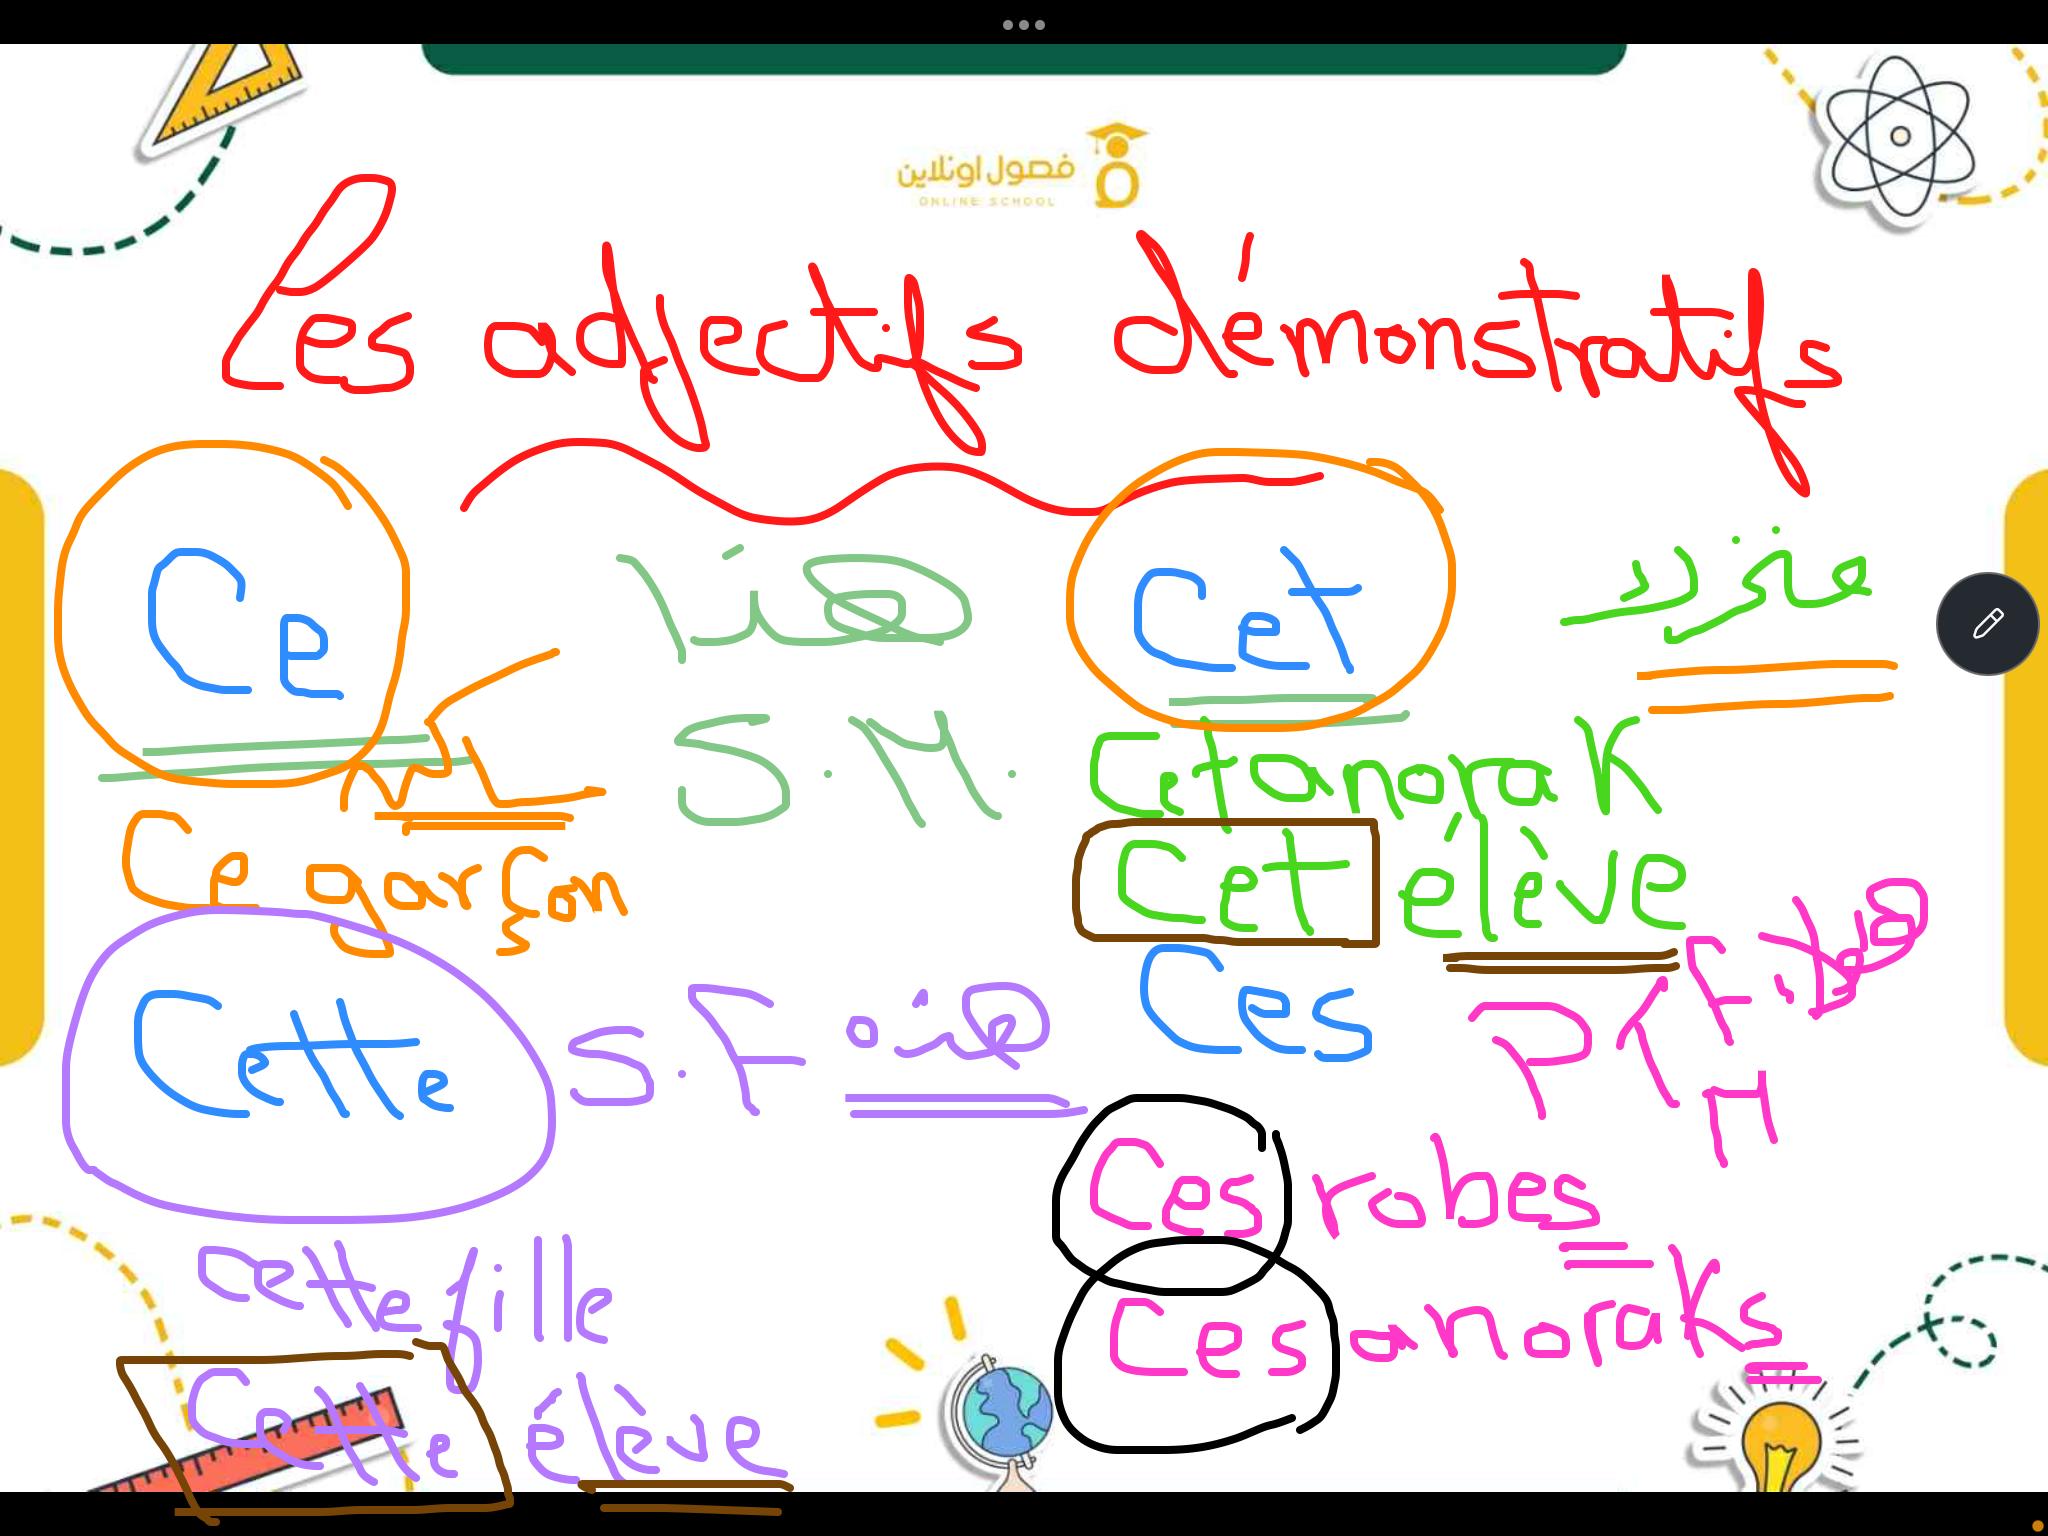 فصول اونلاين
ONLINE SCHOOL
Les adjectifs démonstratifs
Ce هذا S.M.
Ce garçon
Cet
Cet anorak
Cet élève
Cette S.F هذه
Cette fille
Cette élève
Ces Pl F. M
Ces robes
Ces anoraks